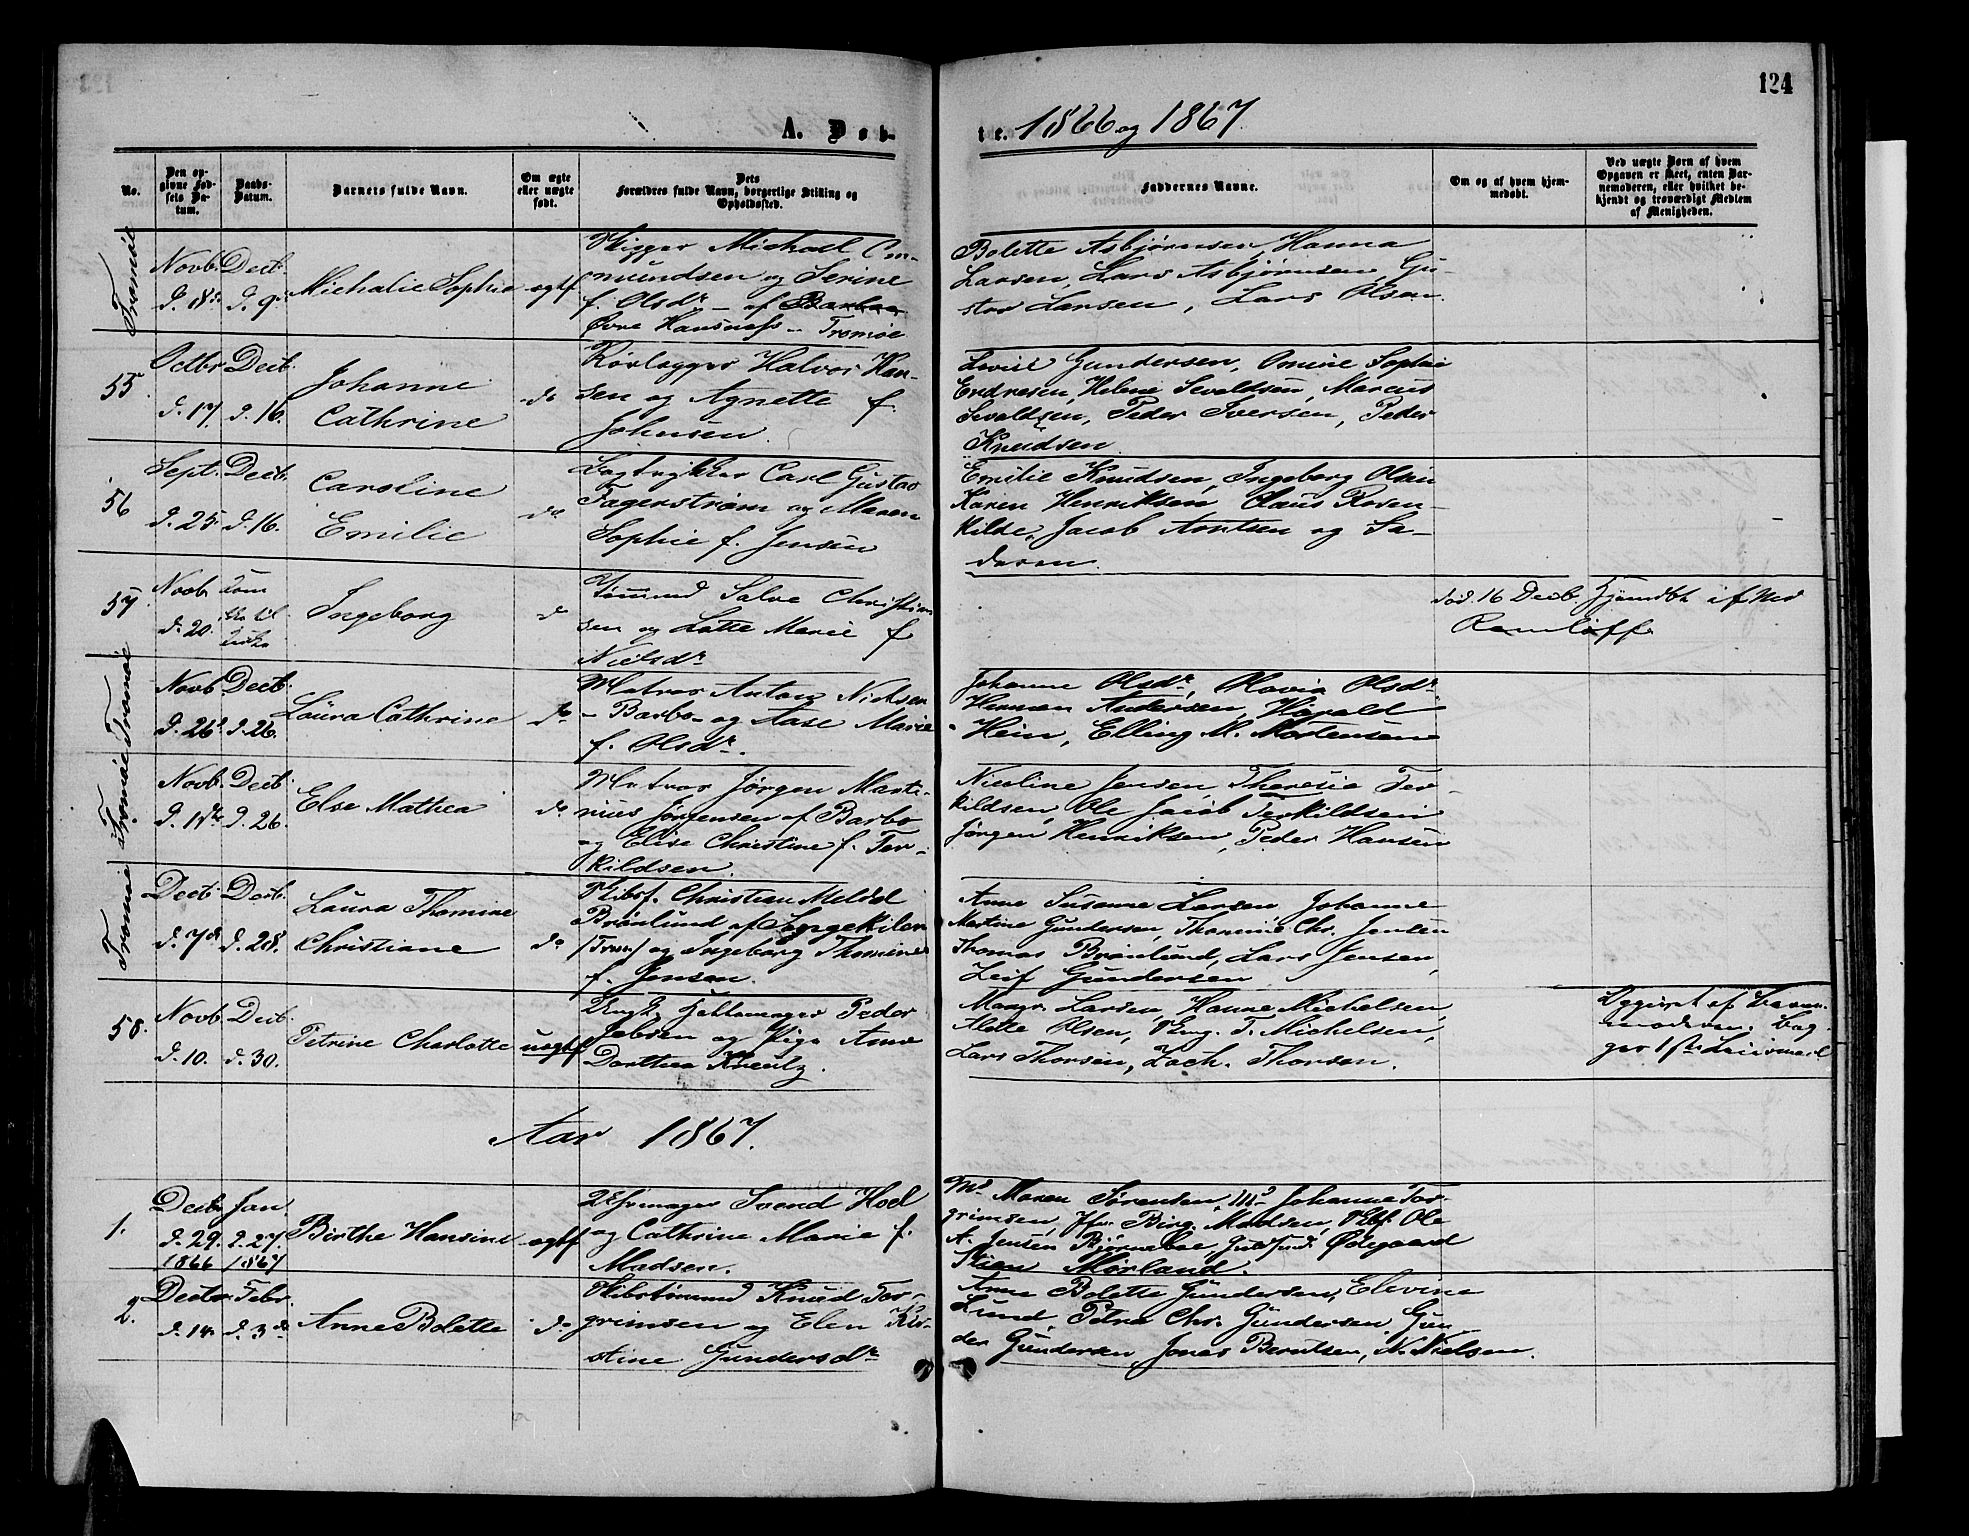 124
A. Døb-
te. 1866 og 1867.
No.
Den op-
givne Fød-
sels Da-
tum.
Daabs-
Datum.
Barnets fulde Navn.
Om ægte
eller uægte
født.
Dets
Forældres fulde Navn, borgerlige Stilling og
Opholdssted.
Faddernes Navne.
Om og af hvem hjem-
medøbt.
Ved uægte Børn af hvem
Opgaven er skeet, enten Bar-
nemoderen, eller hvilket be-
kjendt og troværdigt Medlem
af Menigheden.
Tromøe
Novb. Decb.
d. 18de d. 9de
Michalie Sophie
ægtf
Skipper Michael Om-
mundsen og Serine
f. Olsdr - af Barboe
Øvre Hausnæss - Tromøe
Bolette Asbjørnsen, Hanna
Larsen, Lars Asbjørnsen, Gu-
stav Larsen, Lars Olsen.
55.
Octbr Decb.
d. 17. d. 16.
Johanne
Cathrine
do
Halvor Han-
sen og Agnette f.
Johnsen.
Lovise Gundersen, Omine Sophie
Endresen, Helene Sevaldsen, Marcus
Sevaldsen, Peder Iversen, Peder
Knudsen
56
Sept. Decb.
d. 25. d. 16.
Caroline
Emilie
do
Carl Gustav
Fagerstrøm og Maren
Sophie f. Jensen
Emilie Knudsen, Ingeborg Olsen
Karen Henriksen Claus Rosen-
kilde, Jacob Arntsen og Fa-
deren.
57.
Novb
d. 20.
Ingeborg
do
Tømmermd Salve Christian
sen og Lotte Marie f
Nielsdr
død. 16 Decb
Hjemdbt af
Tromøe
Novb Decb.
d. 26. d. 26.
Laura Cathrine
do
Matros Anton Nielsen
- Barbo - og Aase Marie
f. Olsdr.
Johanne Olsdr, Olavia Olsdr
Herman Andersen, Harald
Hein, Elling M. Mortensen
Tromøe
Novb. Decb
d. 11te d. 26.
Else Mathea
do
Matros Jørgen Marti-
nius Jørgensen af Barbo
og Elise Christine f. Ter-
kildsen.
Nicoline Jensen Theresia Ter-
kildsen, Ole Jacob Terkildsen
Jørgen Henriksen, Peder Hansen
Tromøe
Decb Decb.
d. 7de d. 28.
Laura Thomine
Christiane
do
Skibsf. Christian Meldal
Brønlund af Songekilen
(Trom) og Ingeborg Thomine
f. Jensen.
Anne Susanne Larsen Johanne
Martine Gundersen, Thomine Chr. Jensen
Thomas Brønlund, Lars Jensen,
Leif Gundersen
58.
Novb Decb.
d. 10. d. 30.
Petrine Charlotte
uægtf
Ungk. Peder
Jebsen og Pige Anne
Dorthea Kreutz.
Margr. Larsen, Hanne Michelsen,
Alette Olsen, T. Michelsen,
Lars Thorsen, Zach. Thorsen.
Opgivet af Barne
moderen. Beg-
ges 1ste Leiermaal
Aar 1867.
1.
Decb Jan
d. 29. d. 27.
1866 1867
Birthe Hansine
ægtf
Urmager Svend Hoel
og Cathrine Marie f.
Madsen.
Md Maren Sørensen, Md Johanne Tor-
grimsen, Jfr. Birg. Madsen, Ole
A. Jensen Bjørneboe, Ødegaard
Stian Mørland.
2.
Decbr Febr.
d. 14. d. 3de
Anne Bolette
do
Skibstømmermd Knud Tor-
grimsen og Elen Kir-
stine Gundersdr
Anne Bolette Gundersen, Elevine
Lund, Petra Chr. Gundersen, Gun-
der Gundersen, Jonas Berntsen, N. Nielsen.